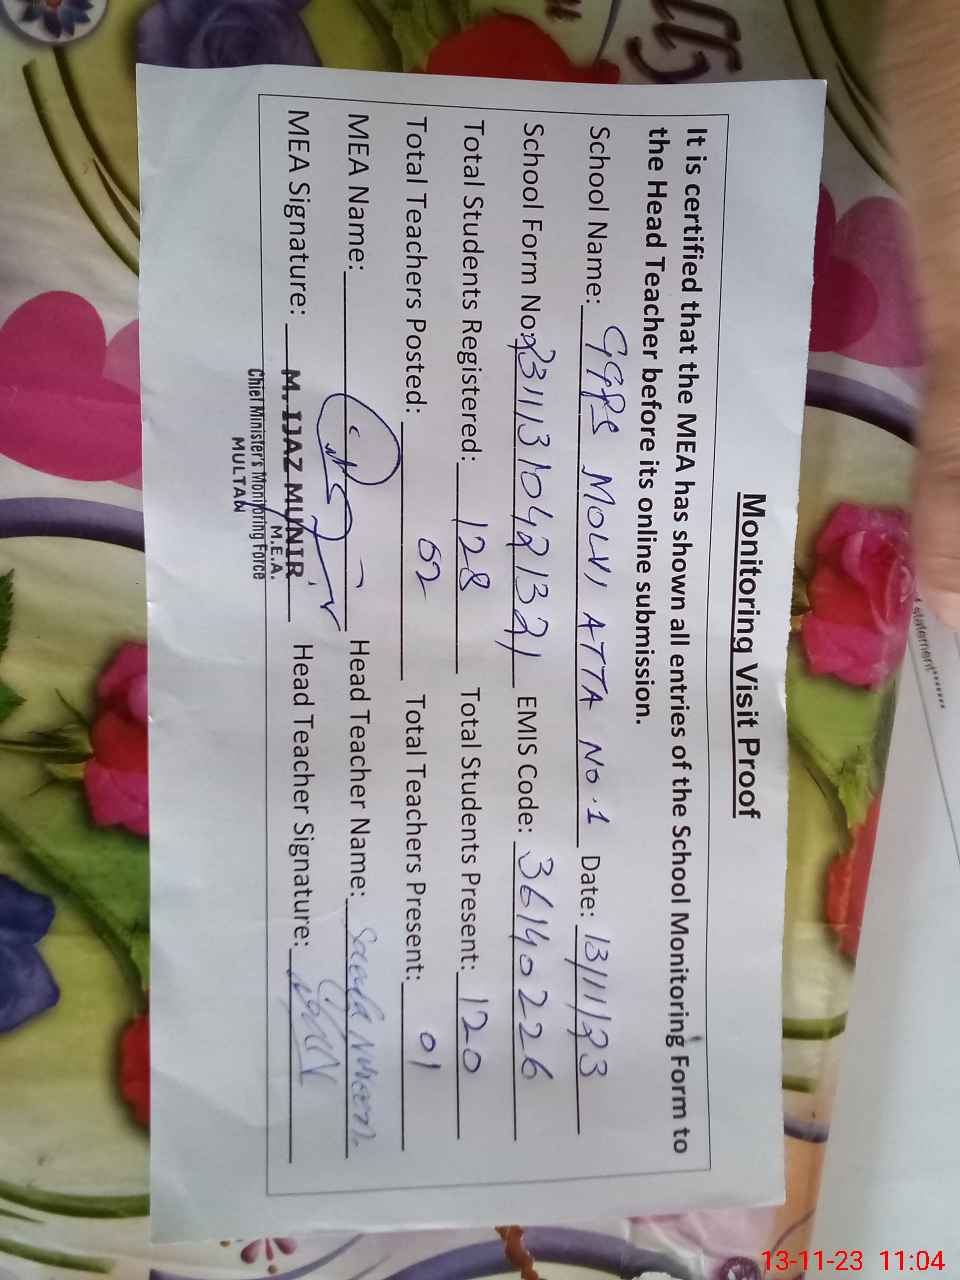 Monitoring Visit Proof
It is certified that the MEA has shown all entries of the School Monitoring Form to
the Head Teacher before its online submission.
School Name: GGPS MOLVI ATTA No.1 Date: 13/11/23
School Form No: 23111310421321 EMIS Code: 36140226
Total Students Registered: 128 Total Students Present: 120
Total Teachers Posted: 02 Total Teachers Present: 01
MEA Name: Head Teacher Name:
MEA Signature: M. IJAZ MUNIR Head Teacher Signature:
M.E.A.
Chief Minister's Monitoring Force
MULTAN
statement
13-11-23 11:04